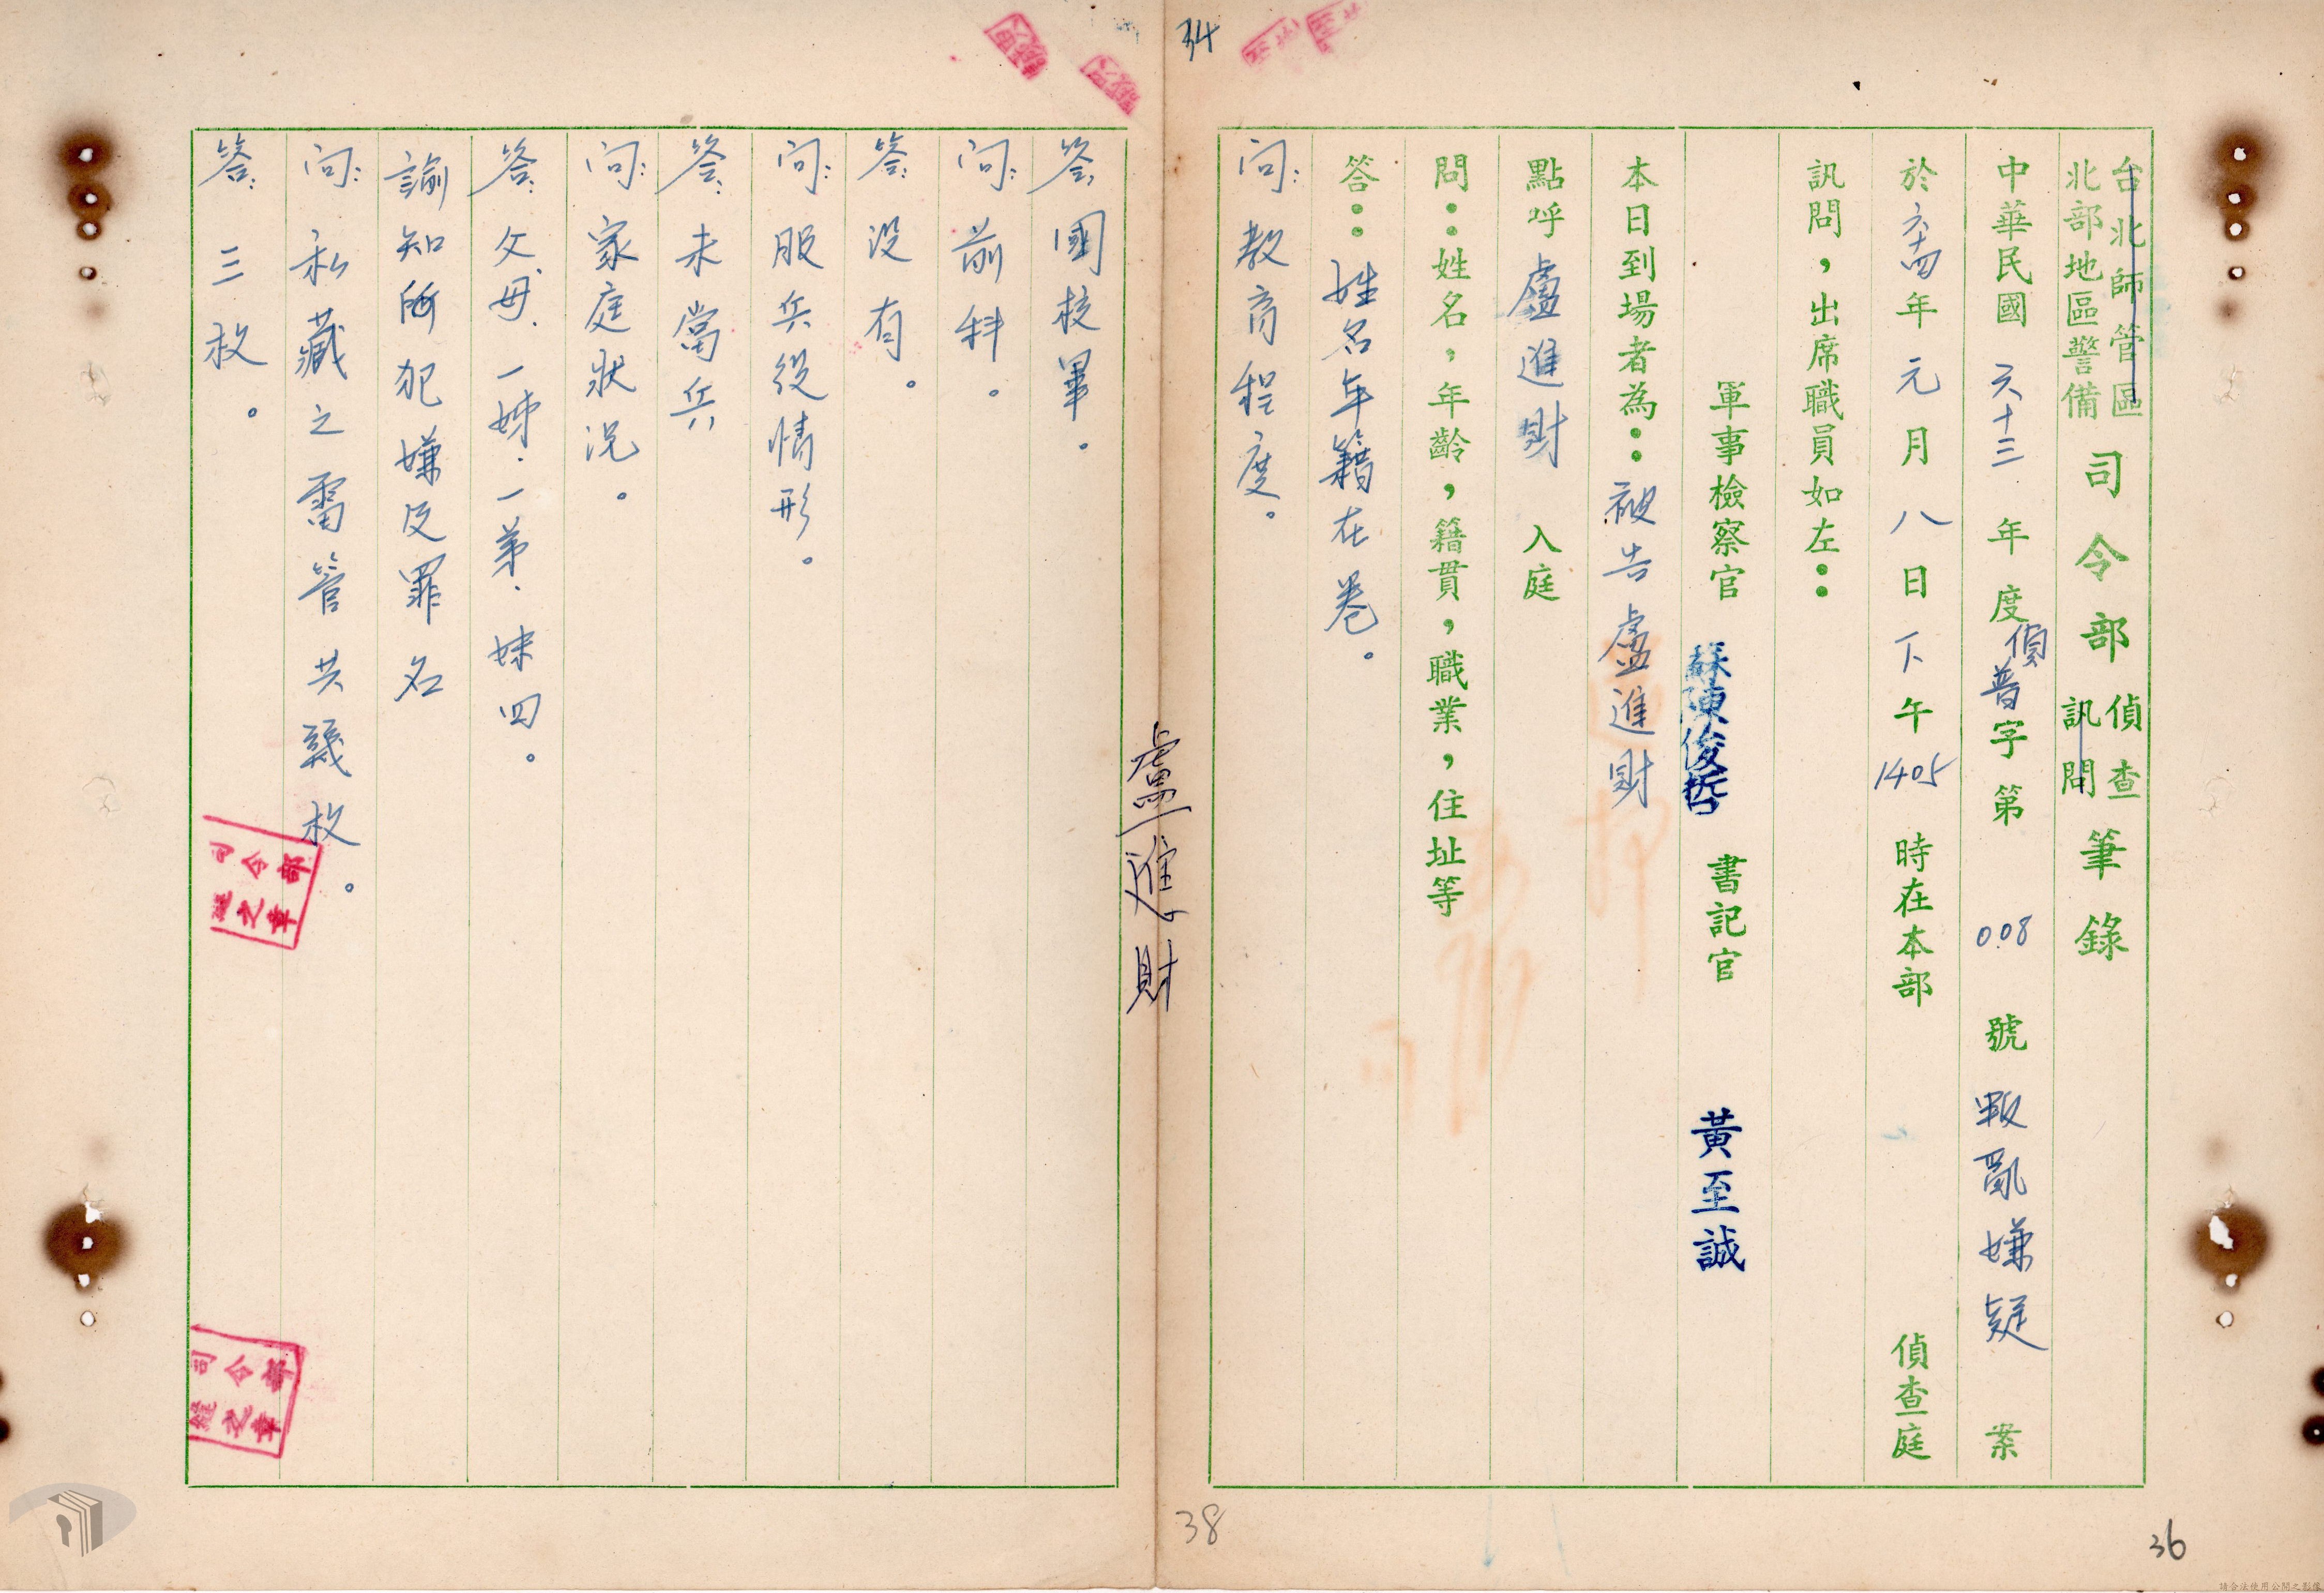 34
台北師管區
北部地區警備
司令部
偵查
訊問
筆錄
中華民國六十三年度偵普字第008號叛亂嫌疑案
於六十四年元月八日下午1405時在本部偵查庭
訊問，出席職員如左：
軍事檢察官 蘇陳俊哲 書記官 黃至誠
本日到場者為：被告盧進財
點呼盧進財入庭
問：姓名，年齡，籍貫，職業，住址等
答：姓名年籍在卷。
問：教育程度。
盧進財
答：國校畢。
問：前科。
答：没有。
問：服兵役情形。
答：未當兵
問：家庭狀況。
答：父、母、一姊、一弟、妹四。
諭知所犯嫌及罪名
問：私藏之雷管共幾枚。
答：三枚。
司令部
之章
司令部
之章
38
36
請合法使用公開之影像